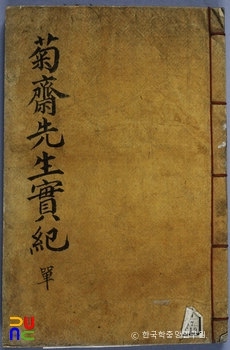 菊齋先生實紀
單
© 한국학중앙연구원